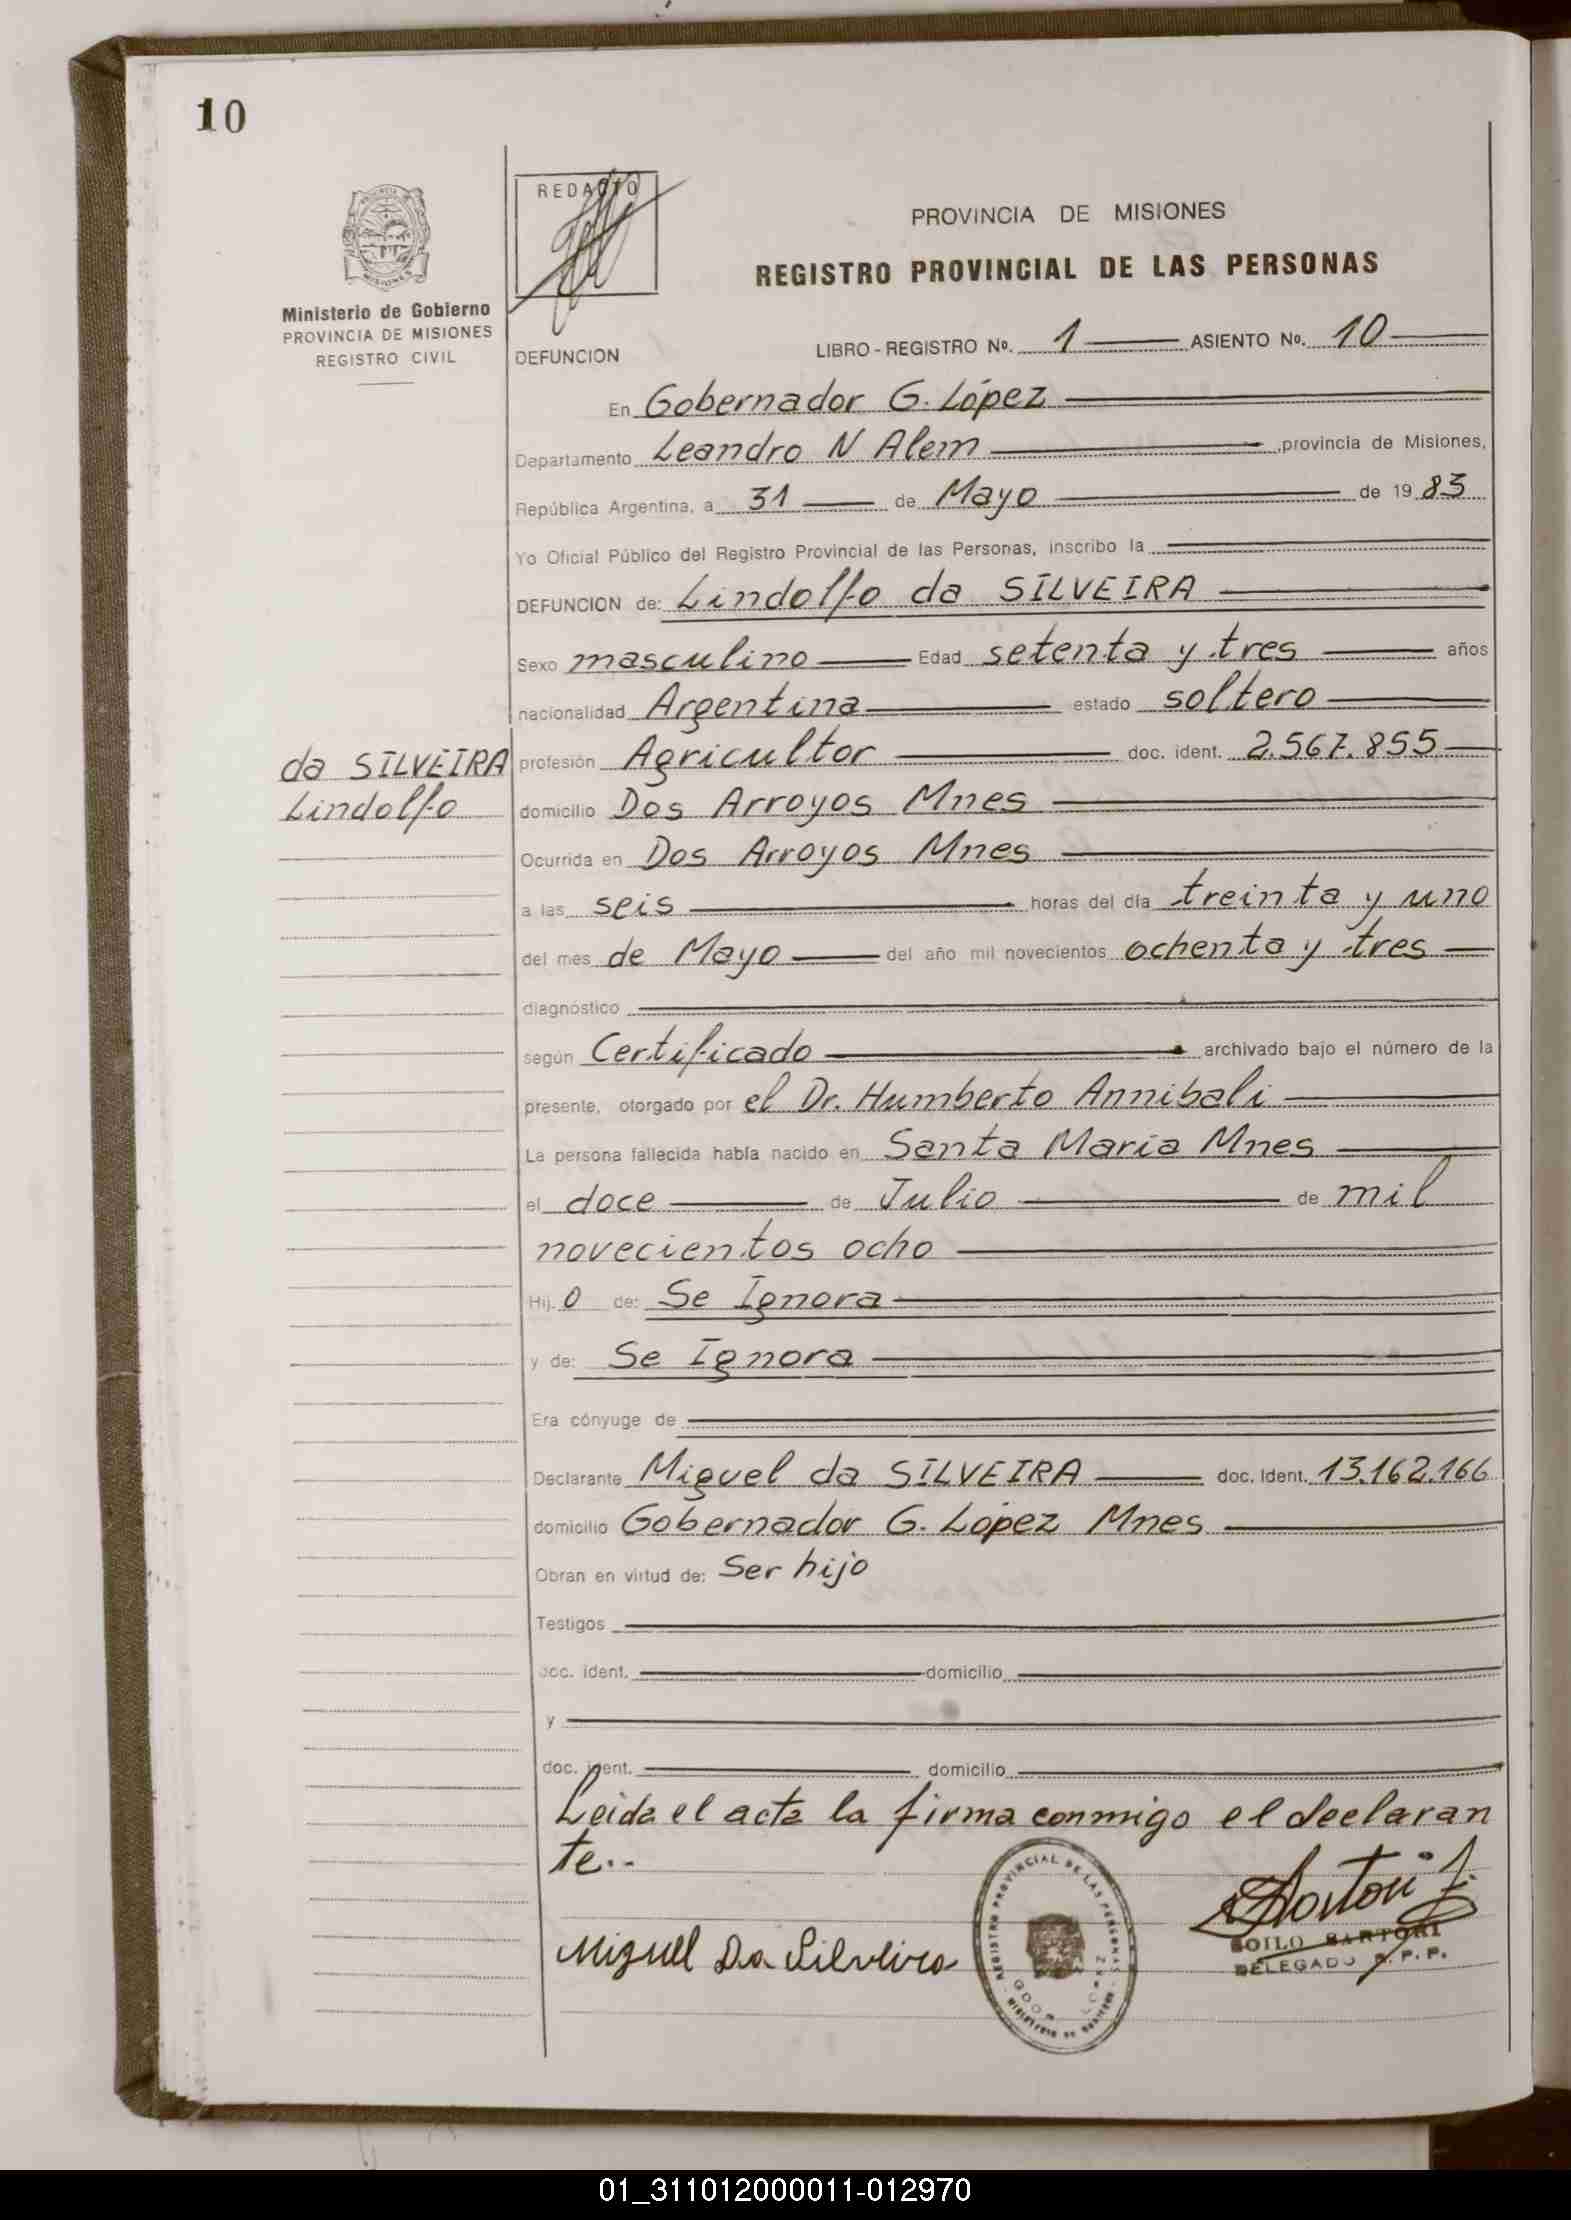 10
REDACTO
PROVINCIA DE MISIONES
REGISTRO PROVINCIAL DE LAS PERSONAS
Ministerio de Gobierno
PROVINCIA DE MISIONES
REGISTRO CIVIL
DEFUNCION LIBRO-REGISTRO No. 1 ASIENTO No. 10
En Gobernador G. López
Departamento Leandro N Alem ,provincia de Misiones,
República Argentina, a 31 de Mayo de 19 83
Yo Oficial Público del Registro Provincial de las Personas, inscribo la
DEFUNCION de: Lindolfo da SILVEIRA
Sexo masculino Edad setenta y tres años
nacionalidad Argentina estado soltero
da SILVEIRA
Lindolfo
profesión Agricultor doc. ident. 2.567.855
domicilio Dos Arroyos Mnes
Ocurrida en Dos Arroyos Mnes
a las seis horas del día treinta y uno
del mes de Mayo del año mil novecientos ochenta y tres
diagnóstico
según Certificado archivado bajo el número de la
presente, otorgado por el Dr. Humberto Annibali
La persona fallecida había nacido en Santa María Mnes
el doce de Julio de mil
novecientos ocho
Hij. o de: Se Ignora
y de: Se Ignora
Era cónyuge de
Declarante Miguel da SILVEIRA doc. Ident. 13.162.166
domicilio Gobernador G. López Mnes
Obran en virtud de: Ser hijo
Testigos
doc. ident. domicilio
y
doc. ident. domicilio
Leida el acta la firma conmigo el declaran
te..
Miguel Da Silveira
REGISTRO PROVINCIAL DE LAS PERSONAS
ZOILO SARTORI
DELEGADO R.P.P.
01_311012000011-012970